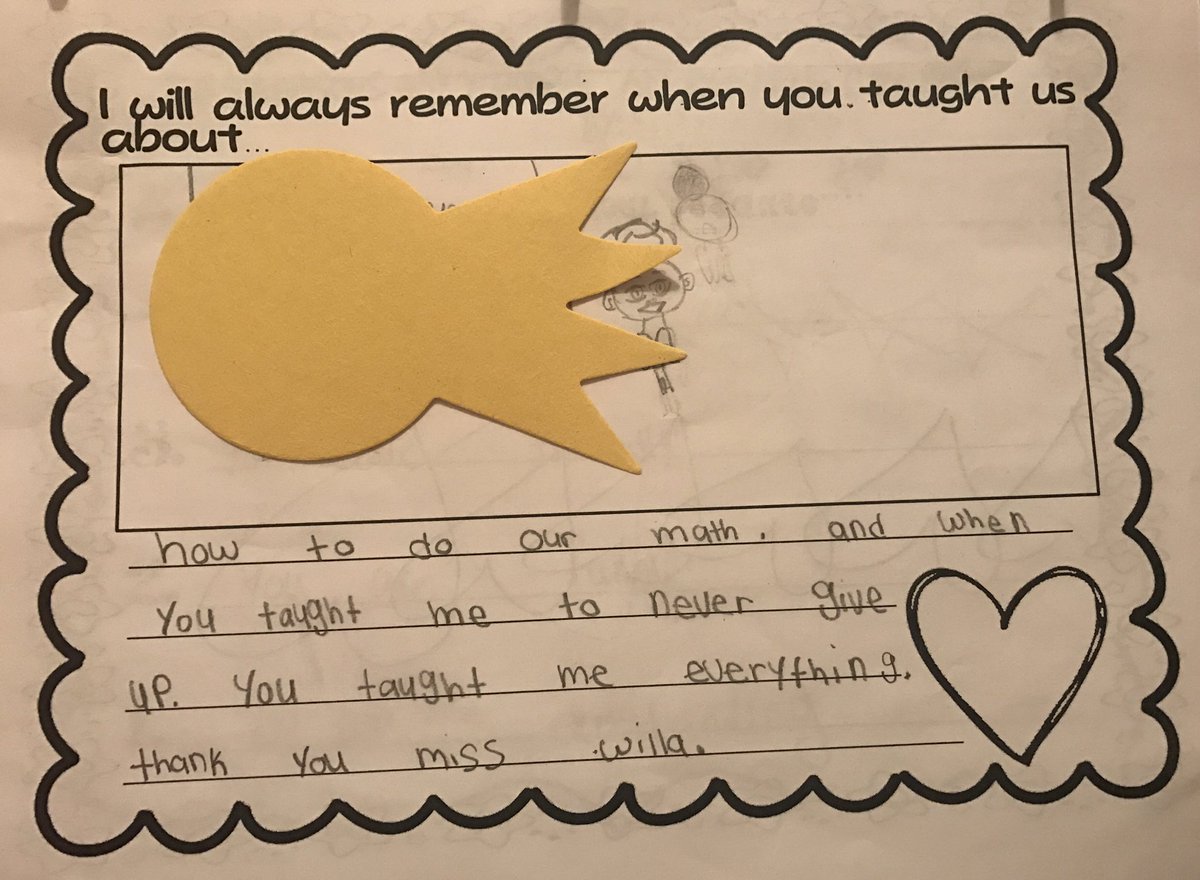 I will always remember when you taught us
about...
how to do our math. and when
You taught me to never give
up. You taught me everything.
thank you miss willa.